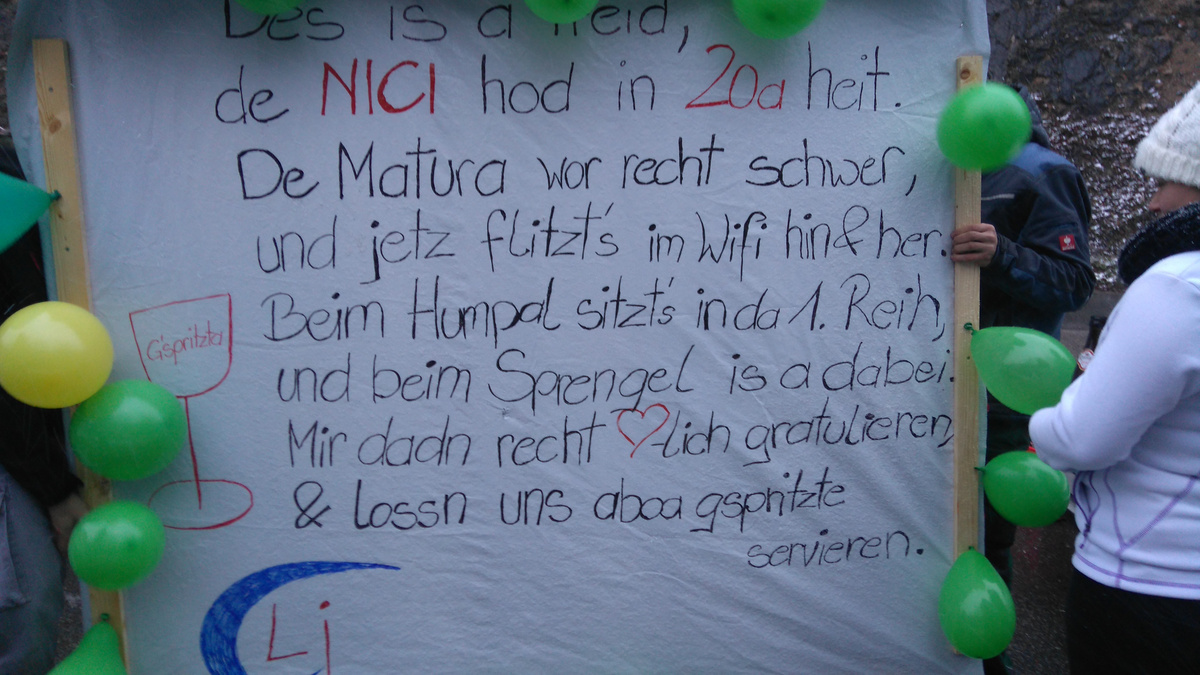 Des is a Freid,
de NICI hod in 20a heit.
De Matura wor recht schwer,
und jetz flitzt's im Wifi hin & her.
Beim Humpal sitzt's in da 1. Reih,
und beim Sprengel is a dabei.
Mir dadn recht ♡-lich gratulieren,
& lossn uns aboa gspritzte
servieren.
G'spritzta
Lj